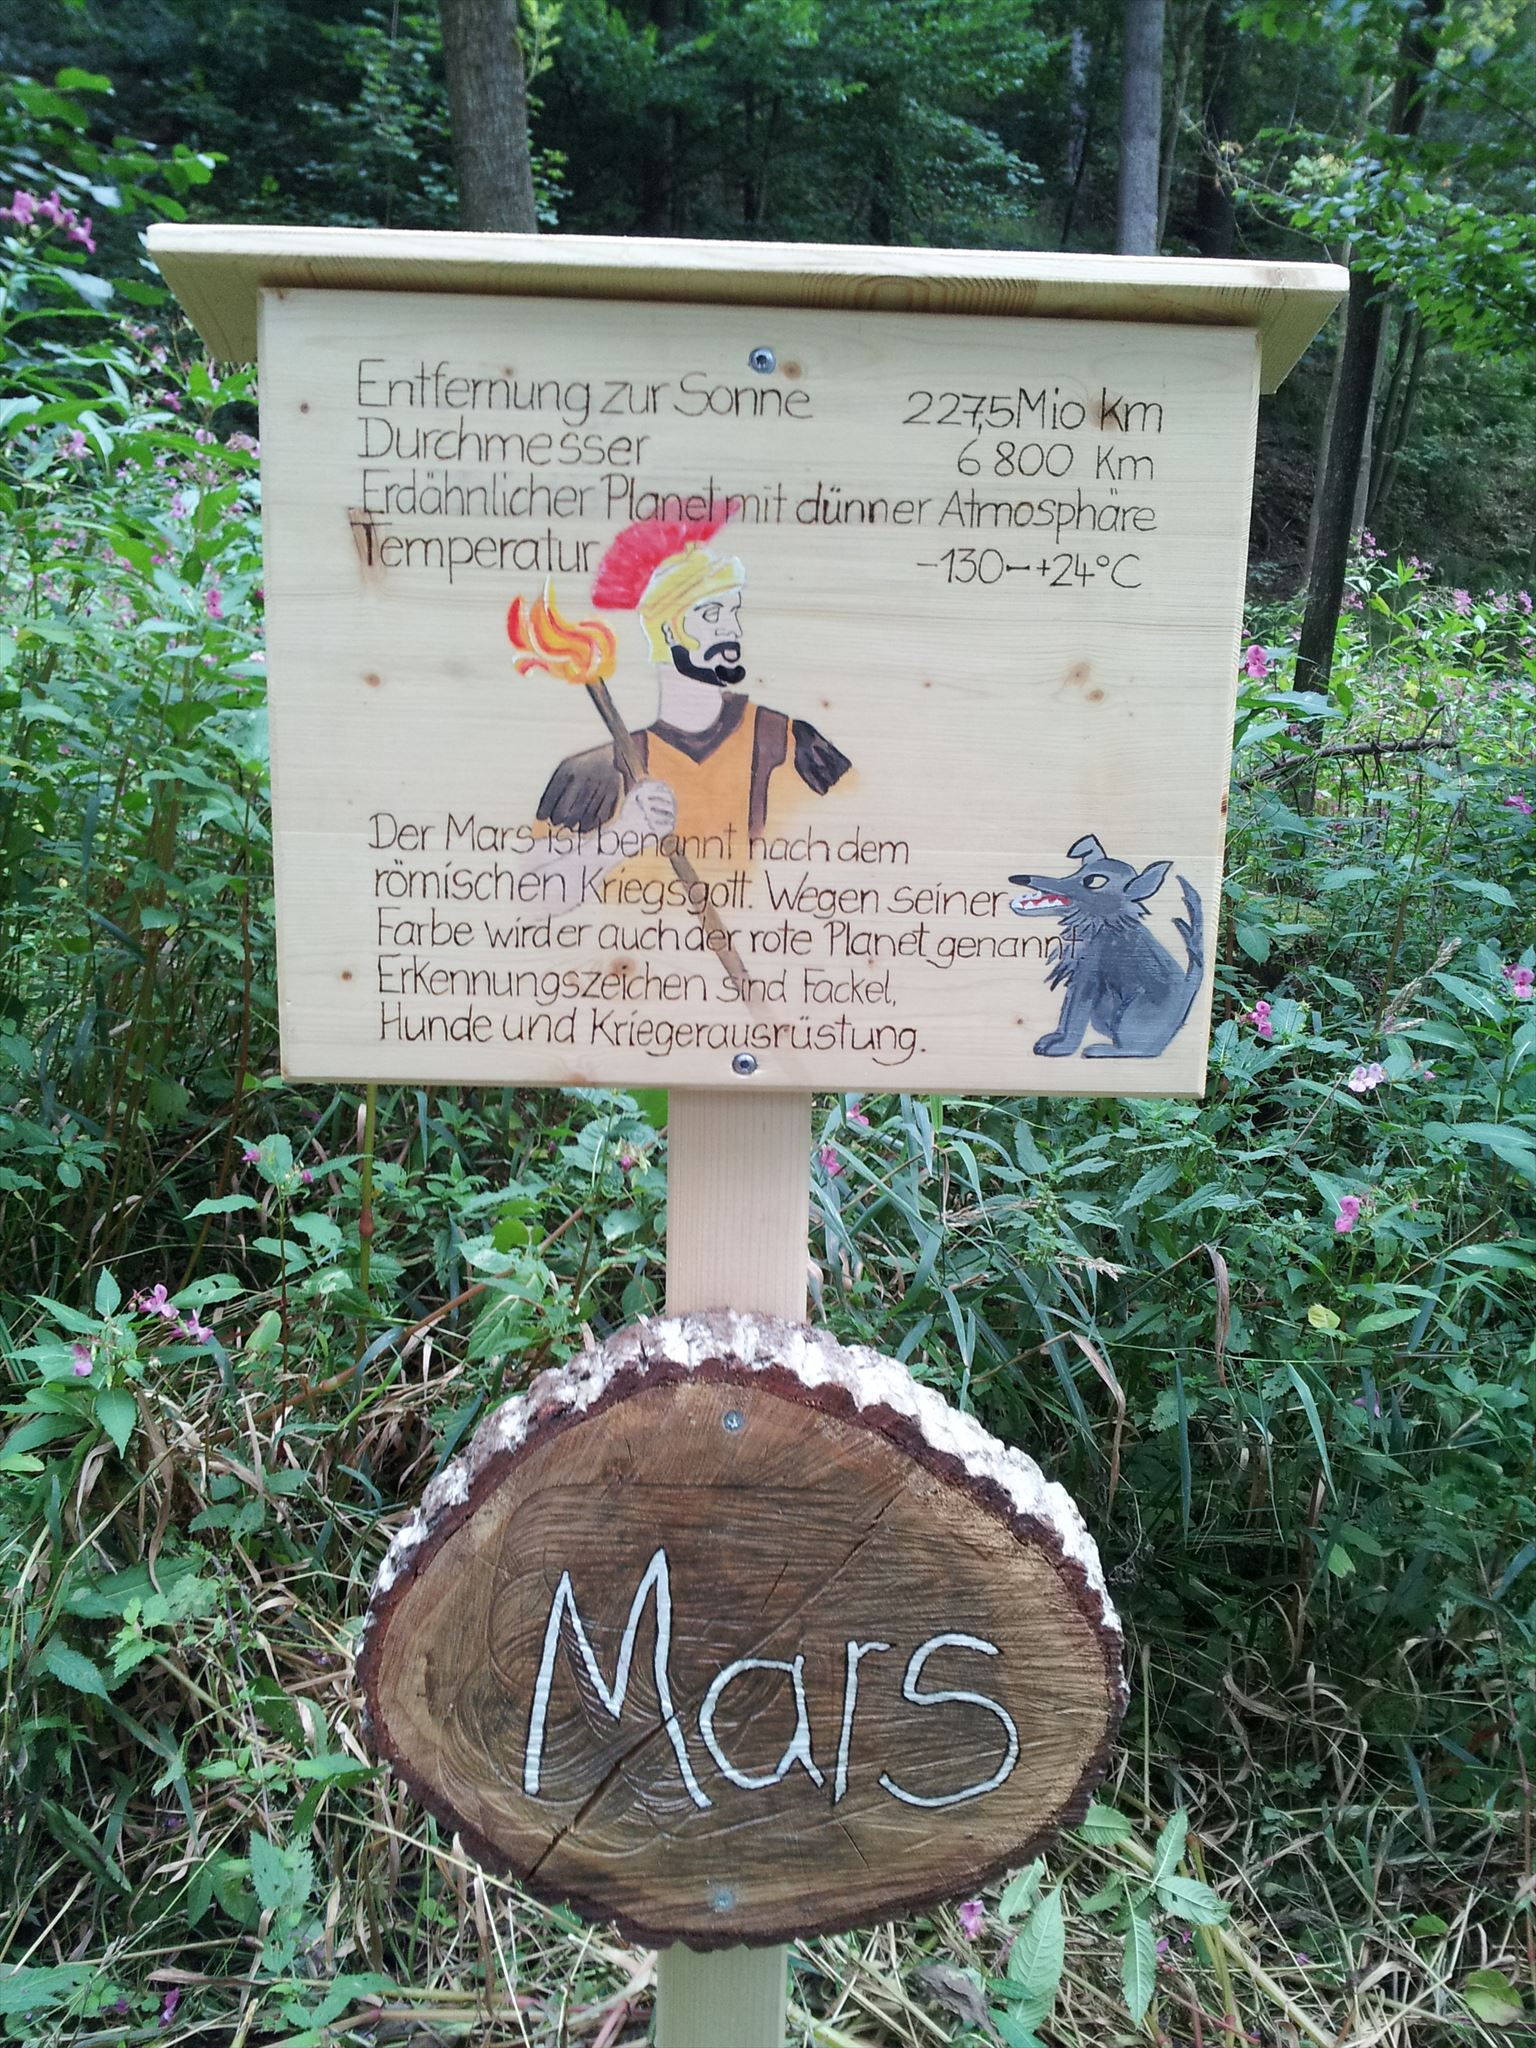 Entfernung zur Sonne 227,5 Mio km
Durchmesser 6 800 Km
Erdähnlicher Planet mit dünner Atmosphäre
Temperatur -130 - +24°C
Der Mars ist benannt nach dem
römischen Kriegsgott. Wegen seiner
Farbe wird er auch der rote Planet genannt.
Erkennungszeichen sind Fackel,
Hunde und Kriegerausrüstung.
Mars